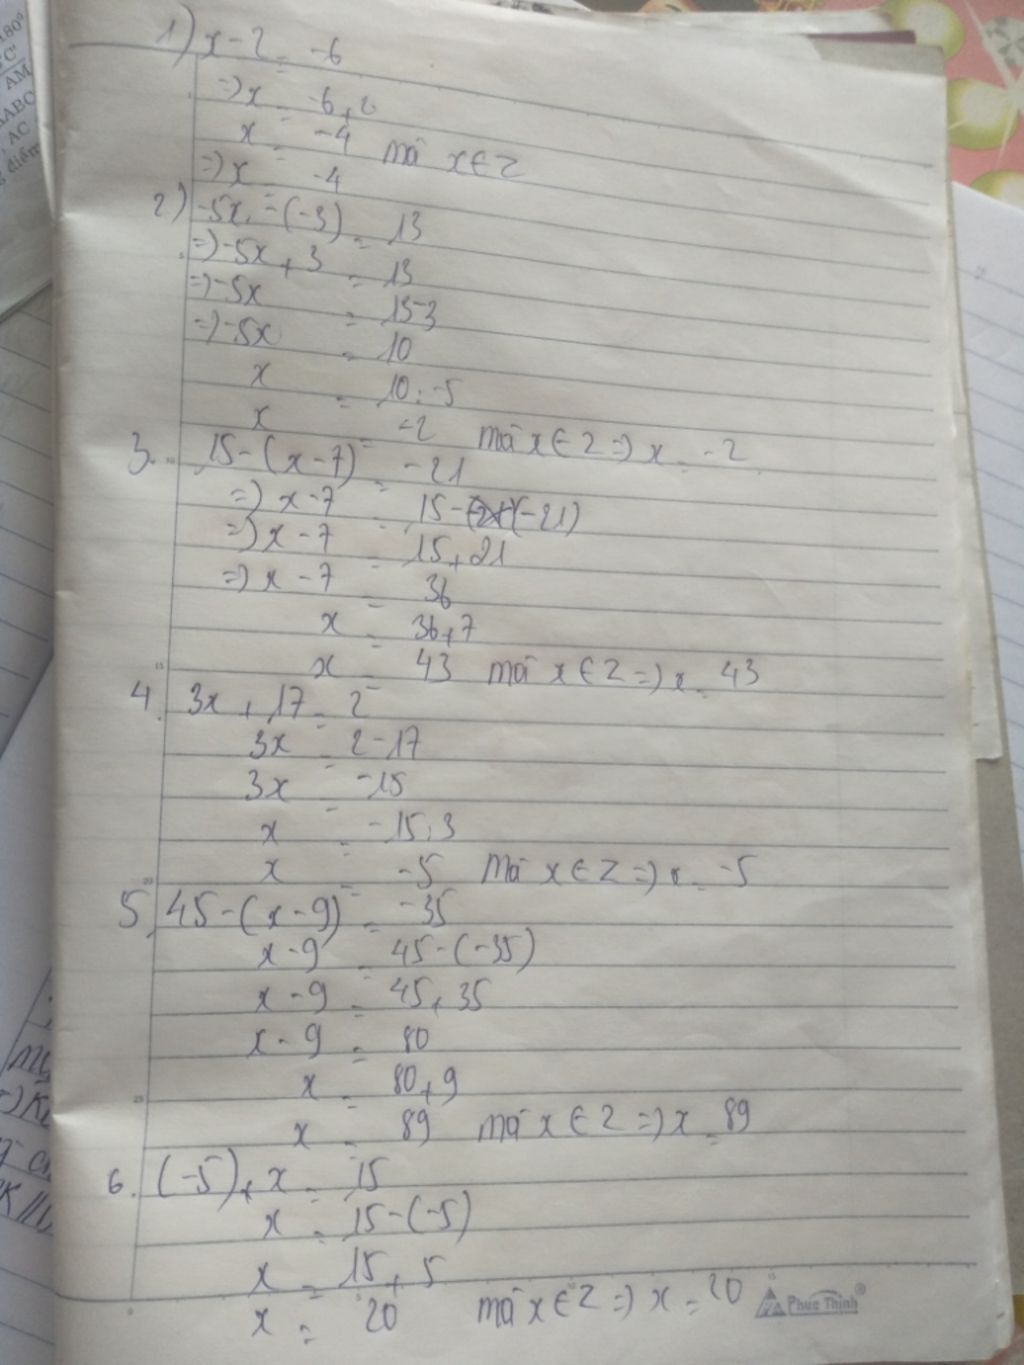 180°
"C"
AM
ABC
AC
điểm
1) x-2 = -6
=> x = -6+2
x = -4 mà x∈Z
=> x = -4
2) -5x - (-3) = 13
=> -5x + 3 = 13
=> -5x = 13-3
=> -5x = 10
x = 10:-5
x = -2 mà x∈Z => x = -2
3. 15-(x-7) = -21
=> x-7 = 15-(-21)
=> x-7 = 15+21
=> x-7 = 36
x = 36+7
x = 43 mà x∈Z => x = 43
4. 3x + 17 = 2
3x = 2-17
3x = -15
x = -15:3
x = -5 mà x∈Z => x = -5
5, 45-(x-9) = -35
x-9 = 45-(-35)
x-9 = 45+35
x-9 = 80
x = 80+9
x = 89 mà x∈Z => x = 89
6. (-5)+x = 15
x = 15-(-5)
x = 15+5
x = 20 mà x∈Z => x = 20
Phuc Thinh®